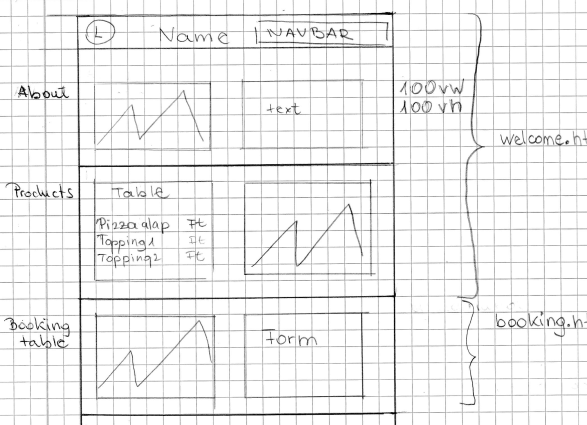 L Name NAVBAR
About
text
100vw
100vh
welcome.ht
Products
Table
Pizza alap Ft
Topping1 Ft
Topping2 Ft
Booking
table
Form
booking.h